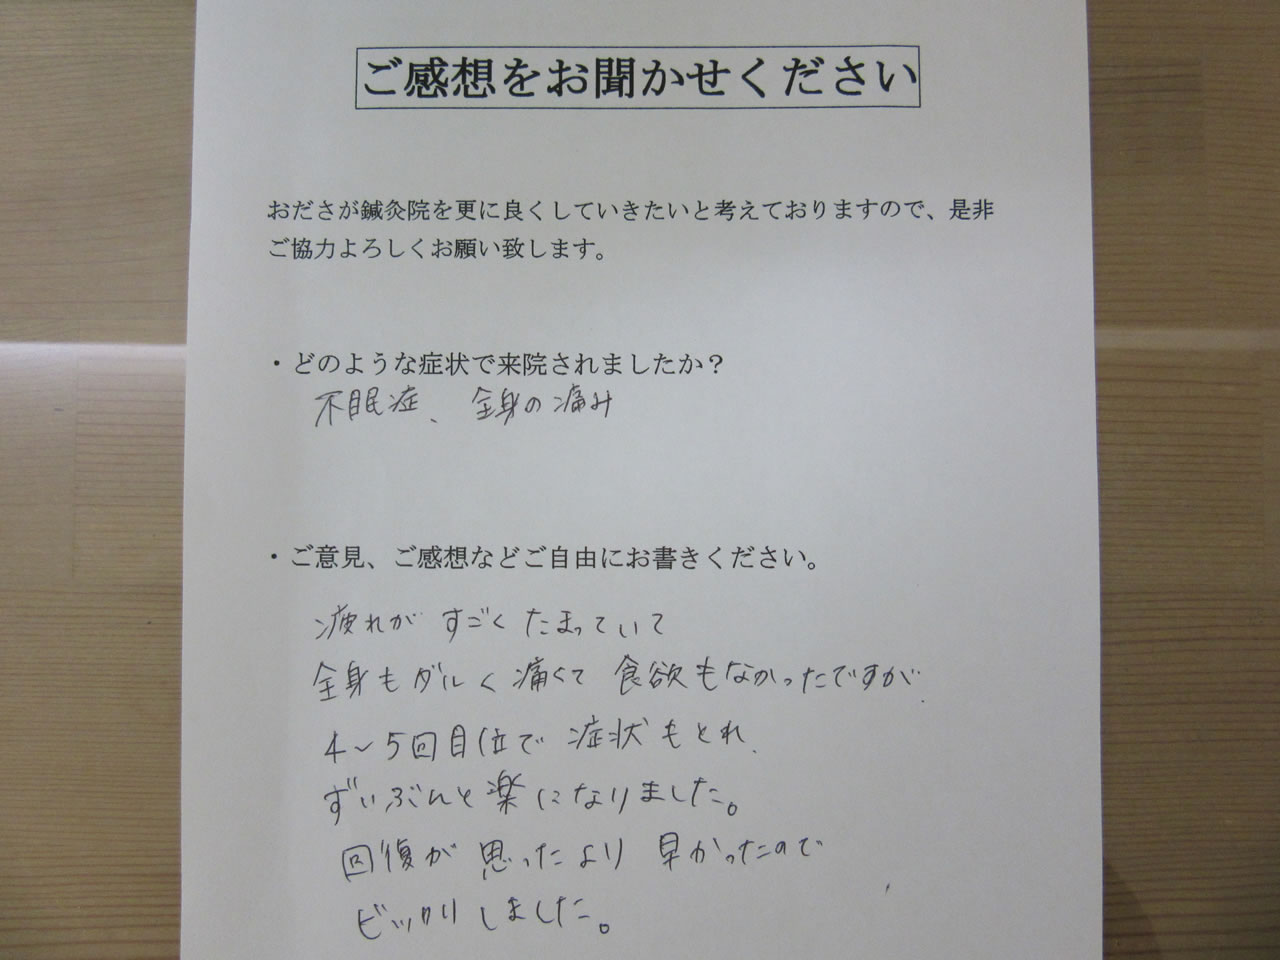 ご感想をお聞かせください
おださが鍼灸院を更に良くしていきたいと考えておりますので、是非
ご協力よろしくお願い致します。
・どのような症状で来院されましたか？
不眠症、全身の痛み
・ご意見、ご感想などご自由にお書きください。
疲れが すごく たまっていて
全身もダルく 痛くて 食欲もなかったですが、
4~5回目位で 症状もとれ、
ずいぶんと楽になりました。
回復が 思ったより 早かったので
ビックリしました。